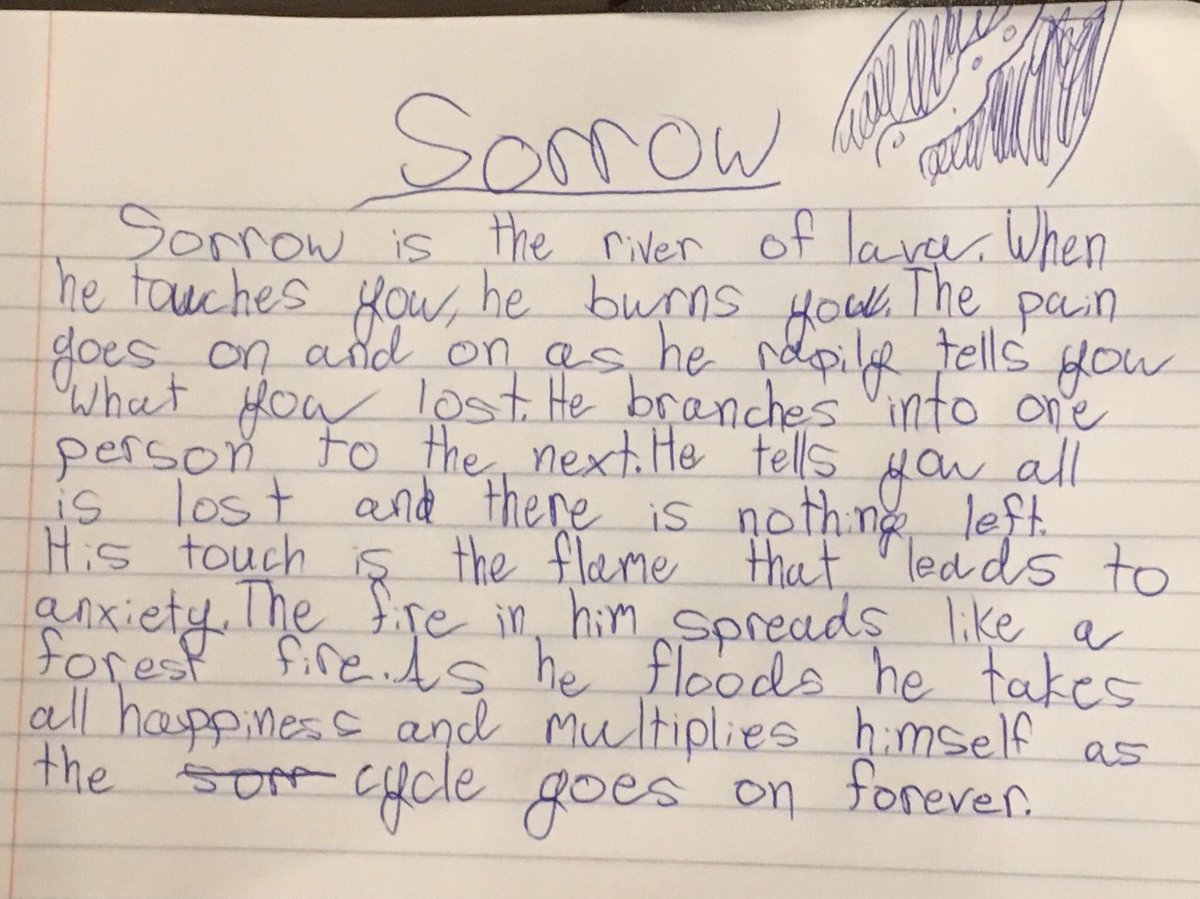 Sorrow
Sorrow is the river of lava. When
he touches you, he burns you. The pain
goes on and on as he rapily tells you
what you lost. He branches into one
person to the next. He tells you all
is lost and there is nothing left.
His touch is the flame that leads to
anxiety. The fire in him spreads like a
forest fire. As he floods he takes
all happiness and multiplies himself as
the sorr cycle goes on forever.